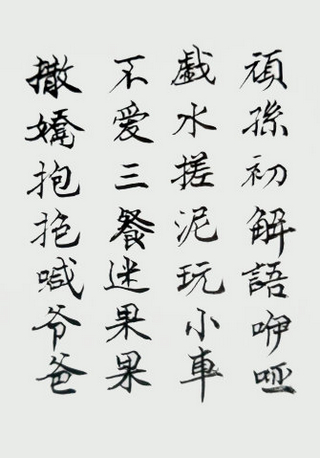 頑孫初解語咿啞
戯水搓泥玩小車
不爱三餐迷果果
撒嬌抱抱喊爷爸